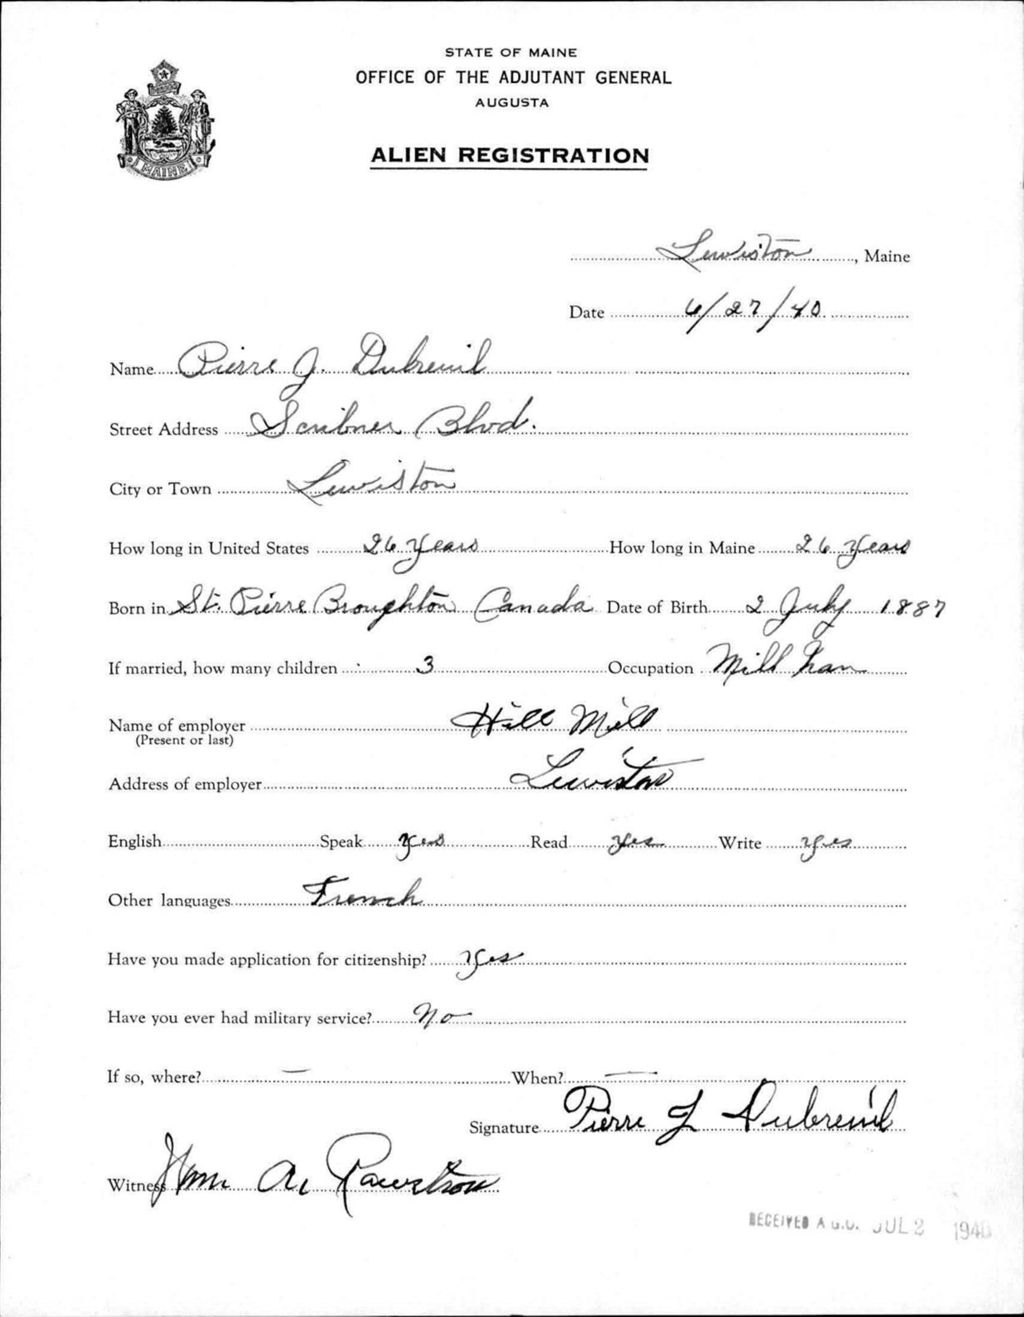 STATE OF MAINE
OFFICE OF THE ADJUTANT GENERAL
AUGUSTA
ALIEN REGISTRATION
MAINE
Lewiston, Maine
Date 6/27/40
Name Pierre J. Dubreuil
Street Address Scribner Blvd.
City or Town Lewiston
How long in United States 26 Years How long in Maine 26 Years
Born in St. Pierre Broughton Canada Date of Birth 2 July 1887
If married, how many children 3 Occupation Mill Man
Name of employer Hill Mill
(Present or last)
Address of employer Lewiston
English Speak Yes Read Yes Write Yes
Other languages French
Have you made application for citizenship? Yes
Have you ever had military service? No
If so, where? — When? —
Signature Pierre J Dubreuil
Witness Wm A. Rawstron
RECEIVED A.G.O. JUL 2 1940